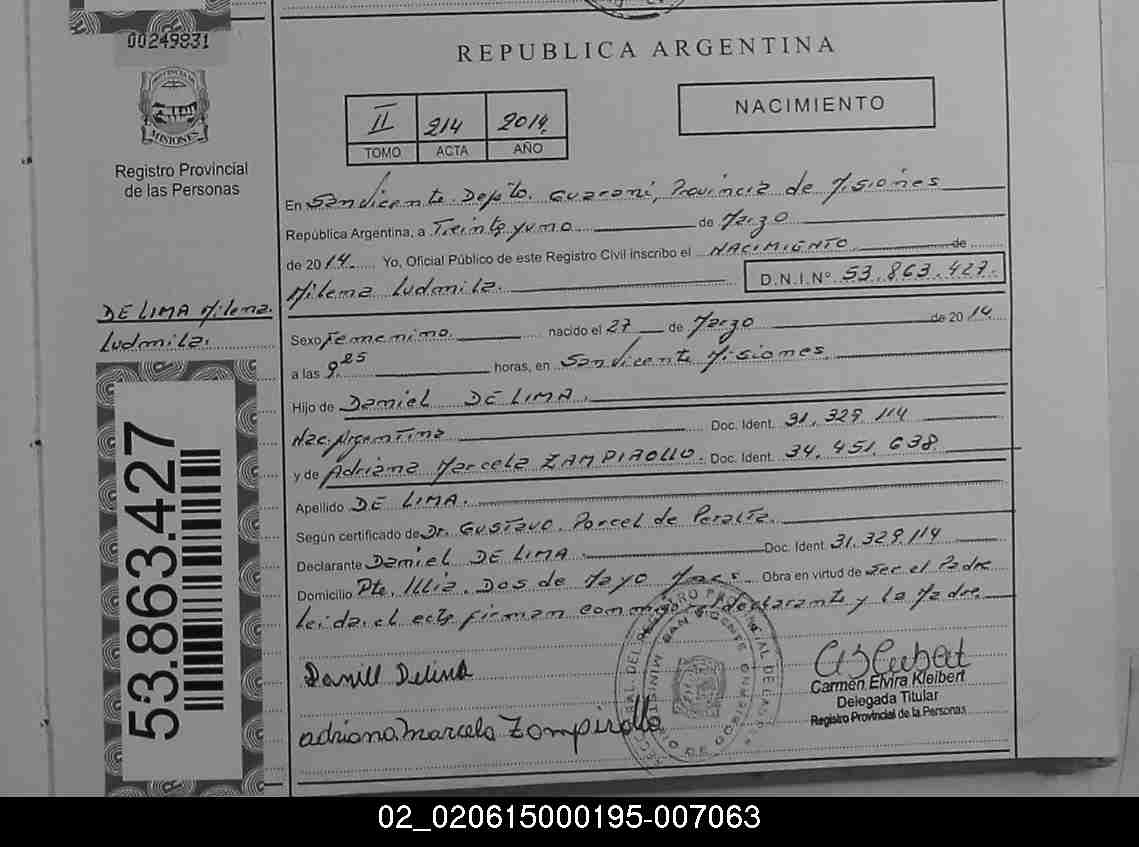 00249831
PROVINCIA DE
MISIONES
Registro Provincial
de las Personas
REPUBLICA ARGENTINA
II 214 2014
TOMO ACTA AÑO
NACIMIENTO
En San Vicente. Depto. Guarani, Provincia de Misiones
República Argentina, a Treinta y uno de Marzo
de 2014. Yo, Oficial Público de este Registro Civil inscribo el NACIMIENTO de
Milena Ludmila. D.N.I Nº 53.863.427.
DE LIMA Milena
Ludmila.
Sexo Femenino. nacido el 27 de Marzo de 2014.
a las 9.25 horas, en San Vicente Misiones
Hijo de Daniel DE LIMA.
Nac. Argentina Doc. Ident. 31.329.114
y de Adriana Marcela ZAMPIROLLO. Doc. Ident. 34.451.638
Apellido DE LIMA.
Según certificado de Dr. Gustavo. Porcel de Peralta.
Declarante Daniel DE LIMA. Doc. Ident. 31.329.114
Domicilio Pte. Illia. Dos de Mayo Mnes. Obra en virtud de ser el Padre
Leida. el acta firman conmigo el declarante y la Madre.
53.863.427
Adriana Marcela Zampirollo
Carmen Elvira Kleibert
Delegada Titular
Registro Provincial de la Personas
02_020615000195-007063